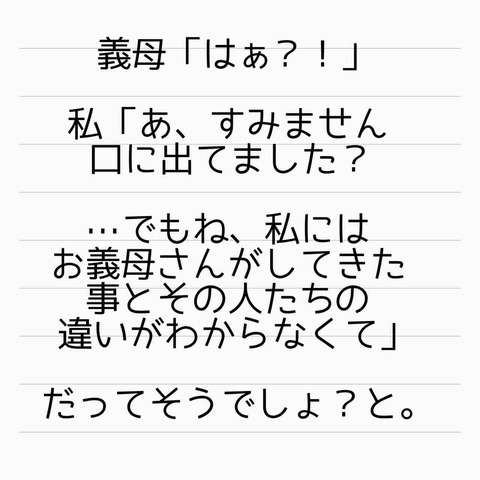 義母「はぁ？！」
私「あ、すみません
口に出てました？
…でもね、私には
お義母さんがしてきた
事とその人たちの
違いがわからなくて」
だってそうでしょ？と。